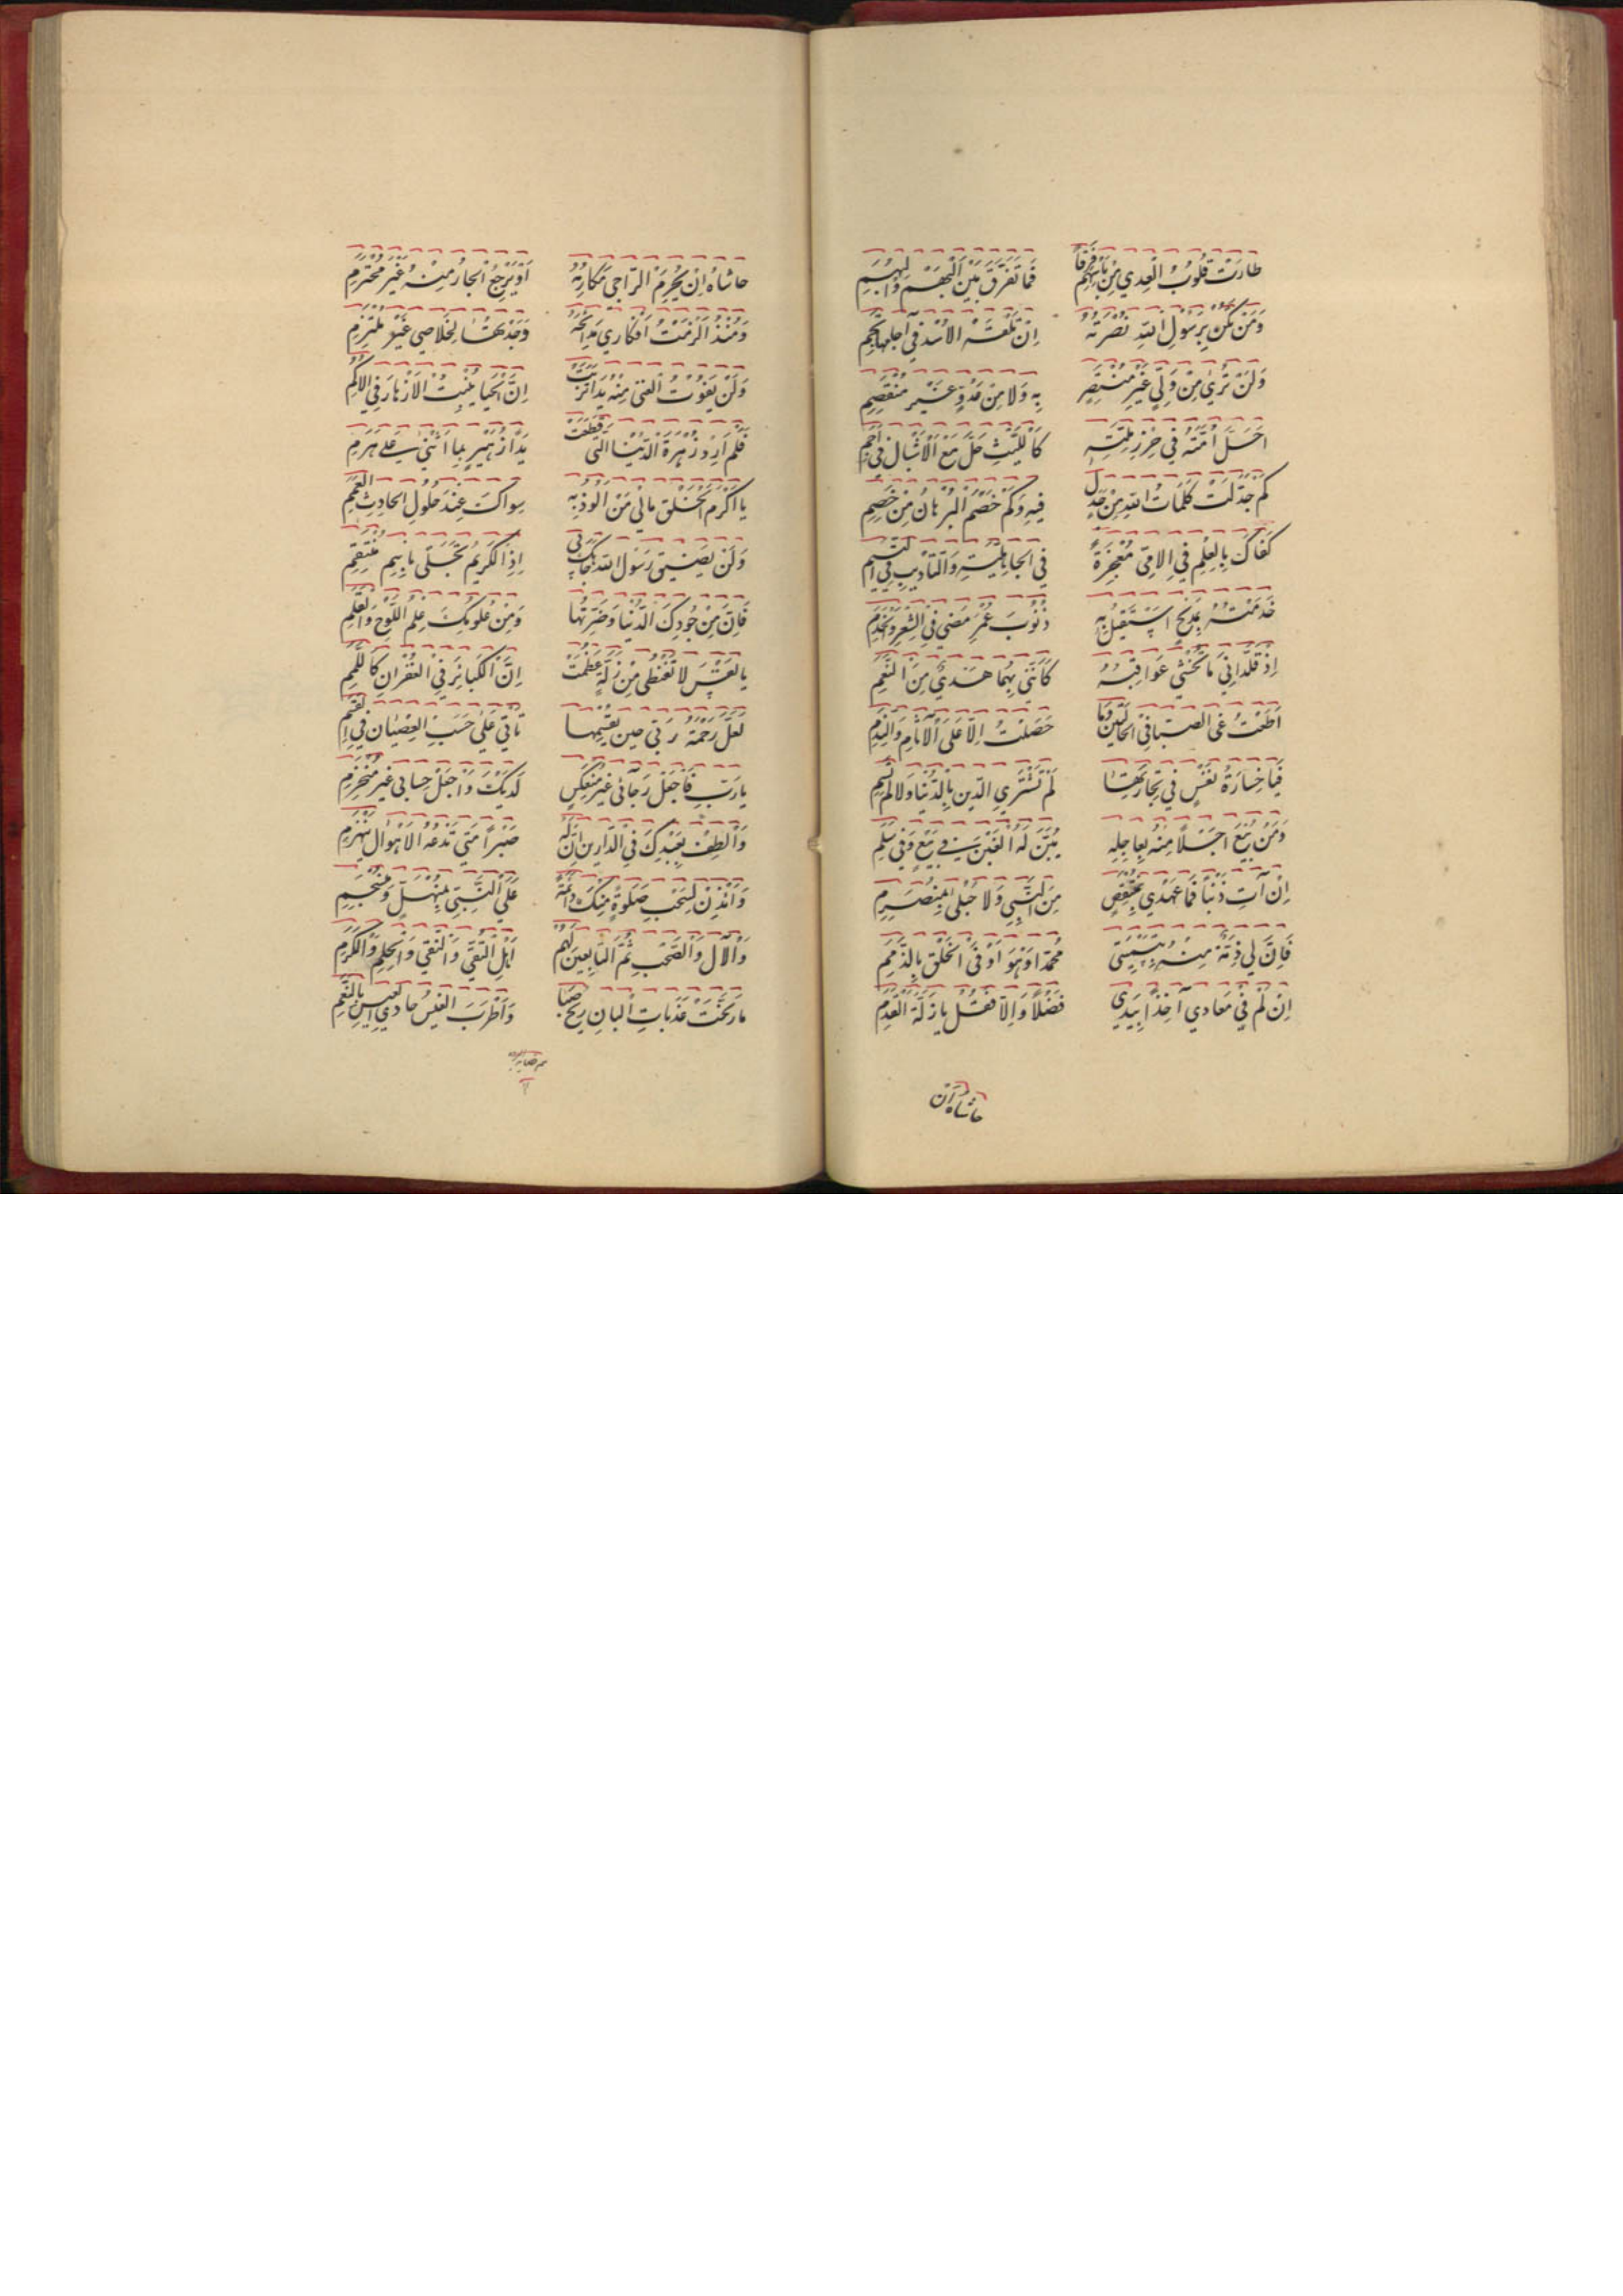 طَارَتْ قُلُوبُ الْعِدِي مِنْ بَأْسِهِمْ فَرَقًا فَمَا تُفَرِّقُ بَيْنَ الْبَهْمِ وَالْبُهَمِ
وَمَنْ تَكُنْ بِرَسُولِ اللّٰهِ نُصْرَتُهُ اِنْ تَلْقَهُ الْاُسْدُ فِي آجَامِهَا تَجِمِ
وَلَنْ تَرٰي مِنْ وَلِيٍّ غَيْرِ مُنْتَصِرٍ بِهِ وَلَا مِنْ عَدُوٍّ غَيْرِ مُنْقَصِمِ
اَحَلَّ اُمَّتَهُ فِي حِرْزِ مِلَّتِهِ كَاللَّيْثِ حَلَّ مَعَ الْاَشْبَالِ فِي اَجَمِ
كَمْ جَدَّلَتْ كَلِمَاتُ اللّٰهِ مِنْ جَدِلٍ فِيهِ وَكَمْ خَصَمَ الْبُرْهَانُ مِنْ خَصِمِ
كَفَاكَ بِالْعِلْمِ فِي الْاُمِّيِّ مُعْجِزَةً فِي الْجَاهِلِيَّةِ وَالتَّأْدِيبِ فِي الْيُتُمِ
خَدَمْتُهُ بِمَدِيحٍ اَسْتَقِيلُ بِهِ ذُنُوبَ عُمْرٍ مَضٰي فِي الشِّعْرِ وَالْخِدَمِ
اِذْ قَلَّدَانِيَ مَا تُخْشٰي عَوَاقِبُهُ كَاَنَّنِي بِهِمَا هَدْيٌ مِنَ النَّعَمِ
اَطَعْتُ غَيَّ الصِّبَا فِي الْحَالَتَيْنِ وَمَا حَصَلْتُ اِلَّا عَلَى الْآثَامِ وَالنَّدَمِ
فَيَا خَسَارَةَ نَفْسٍ فِي تِجَارَتِهَا لَمْ تَشْتَرِي الدِّينَ بِالدُّنْيَا وَلَا لَمْ تَسُمِ
وَمَنْ يَبِعْ آجِلًا مِنْهُ بِعَاجِلِهِ يَبِنْ لَهُ الْغَبْنُ فِي بَيْعٍ وَفِي سَلَمِ
اِنْ آتِ ذَنْبًا فَمَا عَهْدِي بِمُنْتَقِضٍ مِنَ النَّبِيِّ وَلَا حَبْلِي بِمُنْصَرِمِ
فَاِنَّ لِي ذِمَّةً مِنْهُ بِتَسْمِيَتِي مُحَمَّدًا وَهُوَ اَوْفَى الْخَلْقِ بِالذِّمَمِ
اِنْ لَمْ فِي مَعَادِي آخِذًا بِيَدِي فَضْلًا وَاِلَّا فَقُلْ يَا زَلَّةَ الْقَدَمِ
حَاشَاهُ اَنْ
حَاشَاهُ اَنْ يَحْرِمَ الرَّاجِي مَكَارِمَهُ اَوْ يَرْجِعَ الْجَارُ مِنْهُ غَيْرَ مُحْتَرَمِ
وَمُنْذُ اَلْزَمْتُ اَفْكَارِي مَدَائِحَهُ وَجَدْتُهُ لِخَلَاصِي خَيْرَ مُلْتَزِمِ
وَلَنْ يَفُوتَ الْغِنٰي مِنْهُ يَدًا تَرِبَتْ اِنَّ الْحَيَا يُنْبِتُ الْاَزْهَارَ فِي الْاَكَمِ
فَلَمْ اُرِدْ زَهْرَةَ الدُّنْيَا الَّتِي اقْتَطَفَتْ يَدَا زُهَيْرٍ بِمَا اَثْنٰي عَلٰي هَرَمِ
يَا اَكْرَمَ الْخَلْقِ مَالِي مَنْ اَلُوذُ بِهِ سِوَاكَ عِنْدَ حُلُولِ الْحَادِثِ الْعَمَمِ
وَلَنْ يَضِيقَ رَسُولَ اللّٰهِ جَاهُكَ بِي اِذَا الْكَرِيمُ تَجَلّٰي بِاسْمِ مُنْتَقِمِ
فَاِنَّ مِنْ جُودِكَ الدُّنْيَا وَضَرَّتَهَا وَمِنْ عُلُومِكَ عِلْمَ اللَّوْحِ وَالْقَلَمِ
يَا نَفْسُ لَا تَقْنَطِي مِنْ زَلَّةٍ عَظُمَتْ اِنَّ الْكَبَائِرَ فِي الْغُفْرَانِ كَاللَّمَمِ
لَعَلَّ رَحْمَةَ رَبِّي حِينَ يَقْسِمُهَا تَأْتِي عَلٰي حَسَبِ الْعِصْيَانِ فِي الْقِسَمِ
يَا رَبِّ فَاجْعَلْ رَجَائِي غَيْرَ مُنْعَكِسٍ لَدَيْكَ وَاجْعَلْ حِسَابِي غَيْرَ مُنْخَرِمِ
وَالْطُفْ بِعَبْدِكَ فِي الدَّارَيْنِ اِنَّ لَهُ صَبْرًا مَتٰي تَدْعُهُ الْاَهْوَالُ يَنْهَزِمِ
وَاْذَنْ لِسُحْبِ صَلٰوةٍ مِنْكَ دَائِمَةً عَلَى النَّبِيِّ بِمُنْهَلٍّ وَمُنْسَجِمِ
وَالْآلِ وَالصَّحْبِ ثُمَّ التَّابِعِينَ لَهُمْ اَهْلِ التُّقٰي وَالنَّقٰي وَالْحِلْمِ وَالْكَرَمِ
مَا رَنَّحَتْ عَذَبَاتِ الْبَانِ رِيحُ صَبَا وَاَطْرَبَ الْعِيسَ حَادِي الْعِيسِ بِالنَّغَمِ